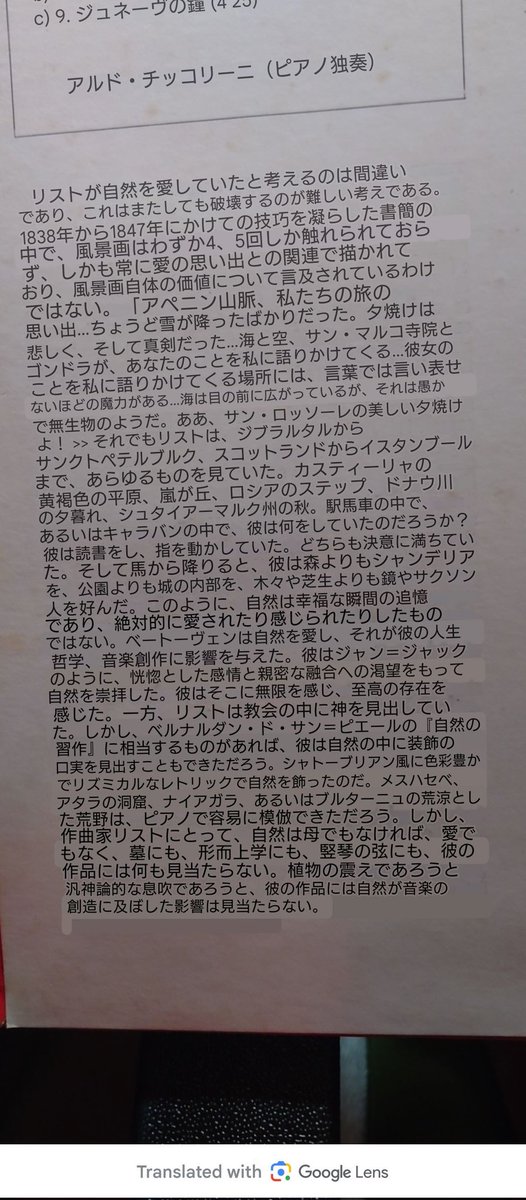 c) 9. ジュネーヴの鐘 (4'25)
アルド・チッコリーニ（ピアノ独奏）
リストが自然を愛していたと考えるのは間違い
であり、これはまたしても破壊するのが難しい考えである。
1838年から1847年にかけての技巧を凝らした書簡の
中で、風景画はわずか4、5回しか触れられておら
ず、しかも常に愛の思い出との関連で描かれて
おり、風景画自体の価値について言及されているわけ
ではない。「アペニン山脈、私たちの旅の
思い出...ちょうど雪が降ったばかりだった。夕焼けは
悲しく、そして真剣だった...海と空、サン・マルコ寺院と
ゴンドラが、あなたのことを私に語りかけてくる...彼女の
ことを私に語りかけてくる場所には、言葉では言い表せ
ないほどの魔力がある...海は目の前に広がっているが、それは愚か
で無生物のようだ。ああ、サン・ロッソーレの美しい夕焼け
よ！ >> それでもリストは、ジブラルタルから
サンクトペテルブルク、スコットランドからイスタンブール
まで、あらゆるものを見ていた。カスティーリャの
黄褐色の平原、嵐が丘、ロシアのステップ、ドナウ川
の夕暮れ、シュタイアーマルク州の秋。駅馬車の中で、
あるいはキャラバンの中で、彼は何をしていたのだろうか？
彼は読書をし、指を動かしていた。どちらも決意に満ちてい
た。そして馬から降りると、彼は森よりもシャンデリア
を、公園よりも城の内部を、木々や芝生よりも鏡やサクソン
人を好んだ。このように、自然は幸福な瞬間の追憶
であり、絶対的に愛されたり感じられたりしたもの
ではない。ベートーヴェンは自然を愛し、それが彼の人生
哲学、音楽創作に影響を与えた。彼はジャン＝ジャック
のように、恍惚とした感情と親密な融合への渇望をもって
自然を崇拝した。彼はそこに無限を感じ、至高の存在を
感じた。一方、リストは教会の中に神を見出してい
た。しかし、ベルナルダン・ド・サン＝ピエールの『自然の
習作』に相当するものがあれば、彼は自然の中に装飾の
口実を見出すこともできただろう。シャトーブリアン風に色彩豊か
でリズミカルなレトリックで自然を飾ったのだ。メスハセベ、
アタラの洞窟、ナイアガラ、あるいはブルターニュの荒涼とし
た荒野は、ピアノで容易に模倣できただろう。しかし、
作曲家リストにとって、自然は母でもなければ、愛で
もなく、墓にも、形而上学にも、竪琴の弦にも、彼の
作品には何も見当たらない。植物の震えであろうと
汎神論的な息吹であろうと、彼の作品には自然が音楽の
創造に及ぼした影響は見当たらない。
Translated with Google Lens